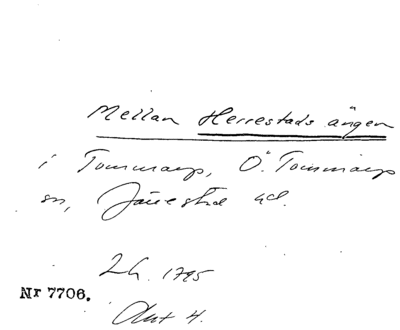 Mellan Herrestads ängen
i Tommarp, Ö. Tommarps
sn, Järrestad hd.
Lh. 1795
Nr 7706.
Akt 4.